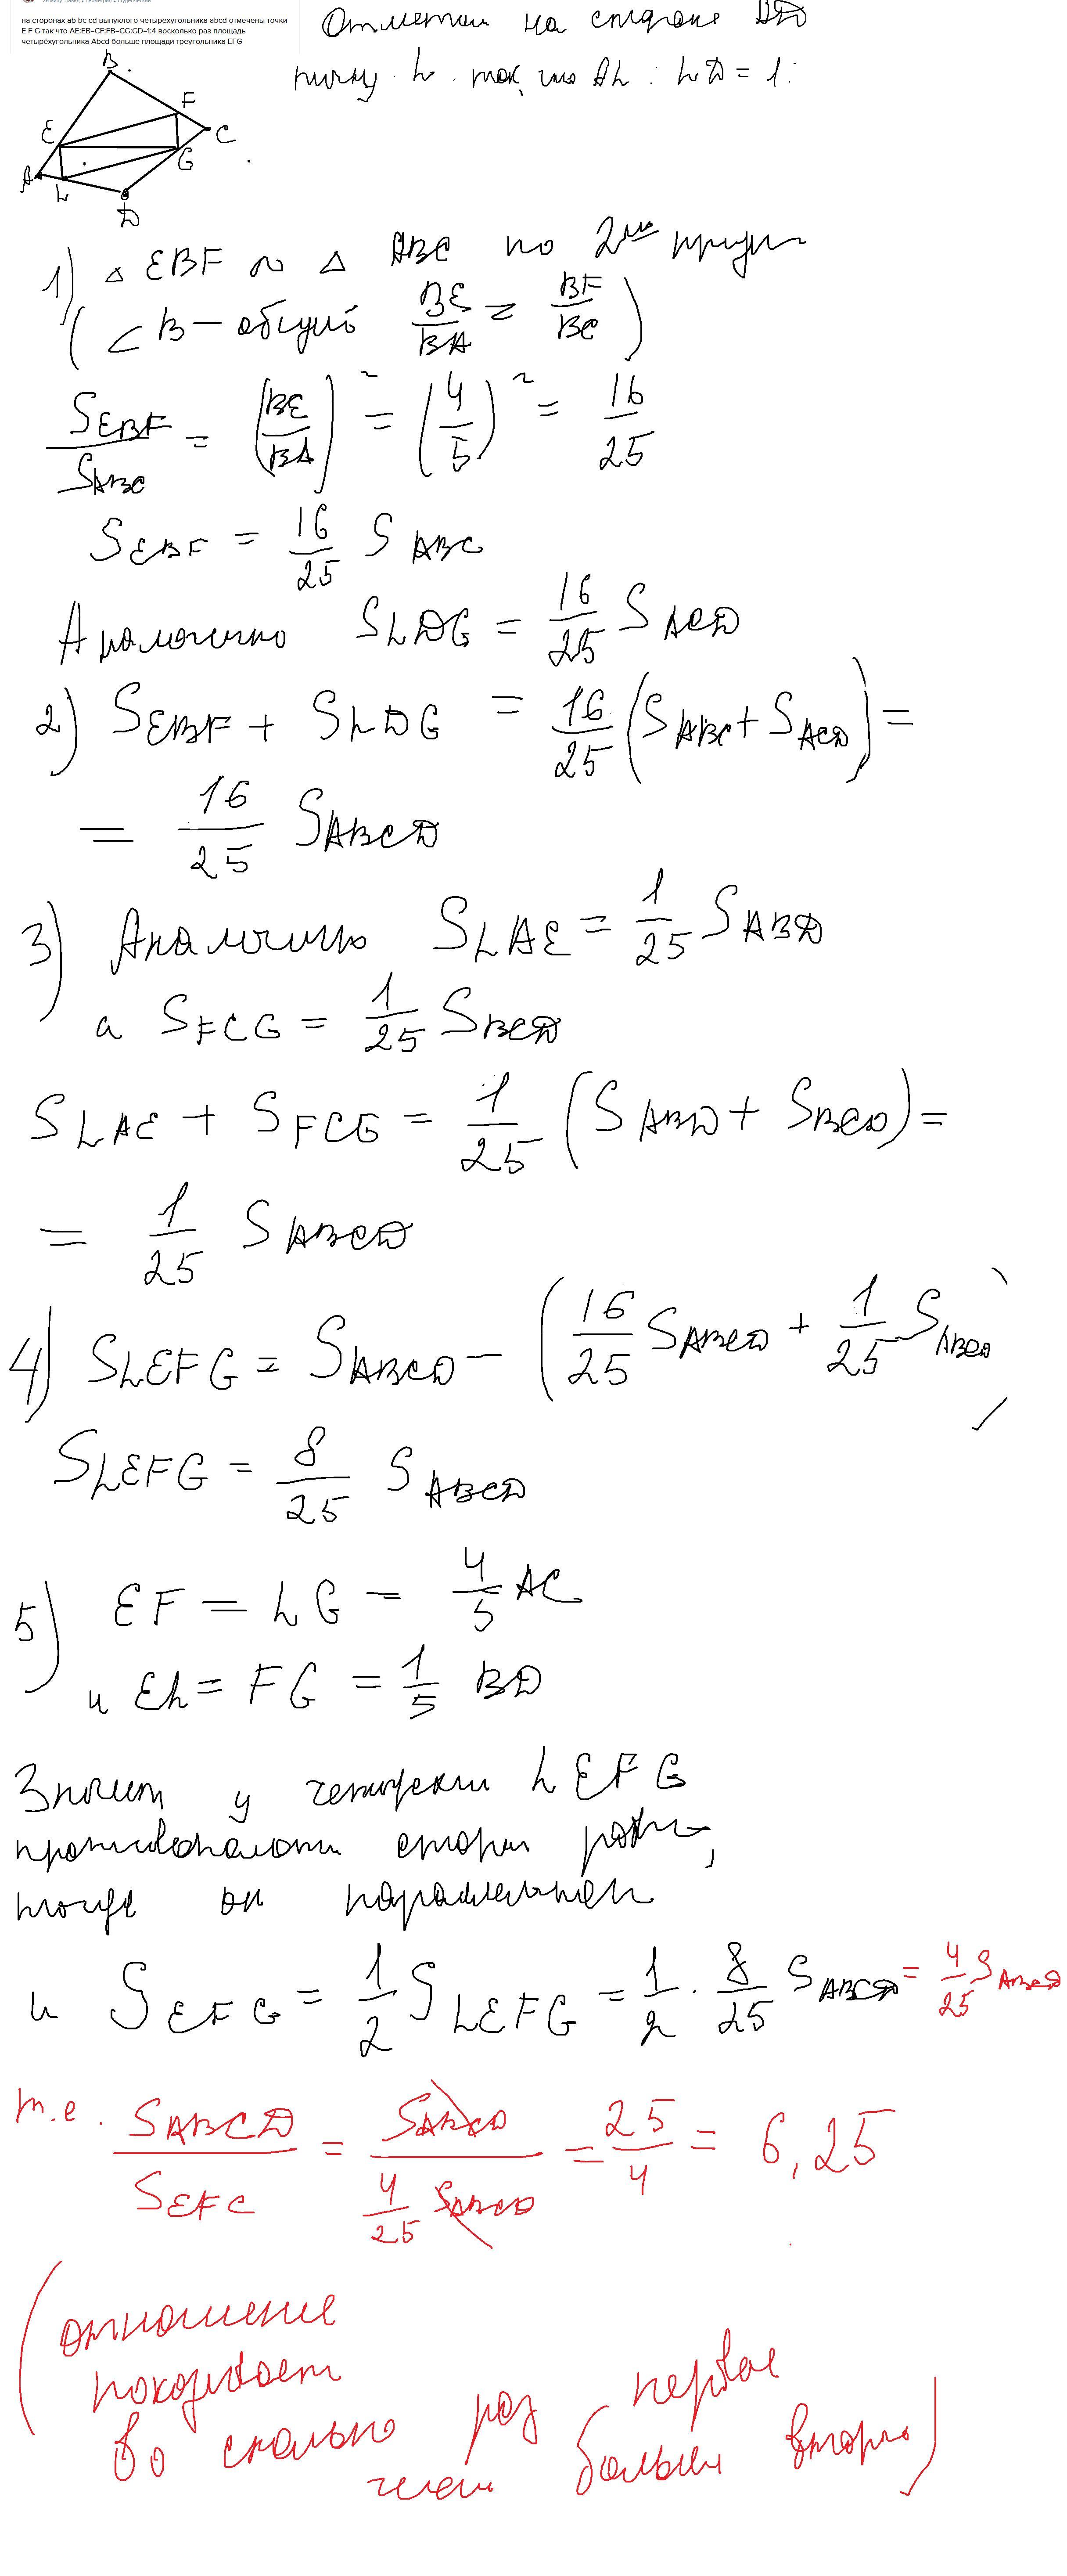 на сторонах ab bc cd выпуклого четырехугольника abcd отмечены точки
E F G так что AE:EB=CF:FB=CG:GD=1:4 восколько раз площадь
четырёхугольника Abcd больше площади треугольника EFG
Отметим на стороне AD
точку L так, что AL : LD = 1:
B
F
E
C
G
A
L
D
1) △ EBF ∾ △ ABC по 2му
( ∠B – общий BE/BA = BF/BC )
S EBF / S ABC = (BE/BA)² = (4/5)² = 16/25
S EBF = 16/25 S ABC
Аналогично S LDG = 16/25 S ACD
2) S EBF + S LDG = 16/25 (S ABC + S ACD) =
= 16/25 S ABCD
3) Аналогично S LAE = 1/25 S ABD
а S FCG = 1/25 S BCD
S LAE + S FCG = 1/25 (S ABD + S BCD) =
= 1/25 S ABCD
4) S LEFG = S ABCD – (16/25 S ABCD + 1/25 S ABCD)
S LEFG = 8/25 S ABCD
5) EF = LG = 4/5 AC
и EL = FG = 1/5 BD
Значит у LEFG
и S EFG = 1/2 S LEFG = 1/2 · 8/25 S ABCD = 4/25 S ABCD
т.е. S ABCD / S EFG = S ABCD / 4/25 S ABCD = 25/4 = 6,25
(отношение
показывает
во сколько раз первое
больше второго)